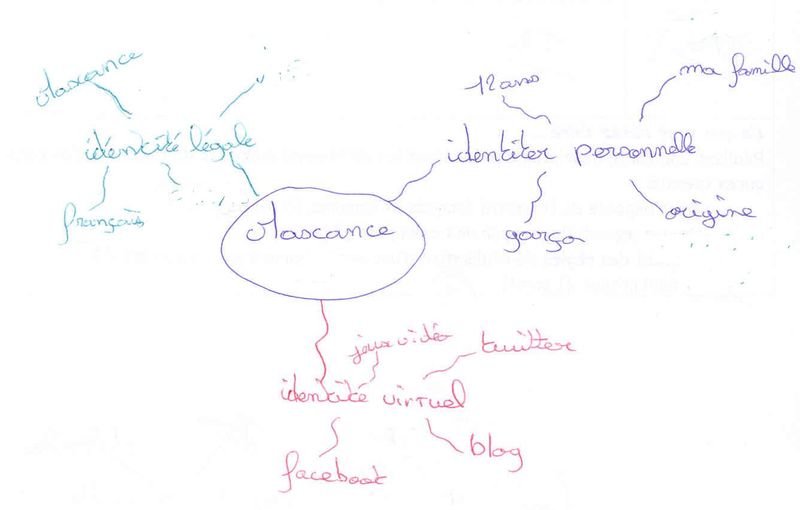 12 ans
ma famille
identité légale
identiter personnelle
français
origine
garçon
jeux vidéo
twitter
identité virtuel
blog
facebook